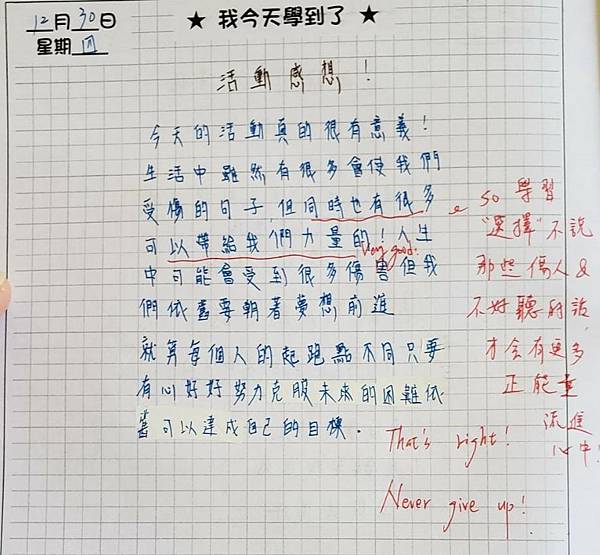 12月30日
星期四
★ 我今天學到了 ★
活動感想!
今天的活動真的很有意義!
生活中雖然有很多會使我們
受傷的句子,但同時也有很多
可以帶給我們力量的!人生
Very good!
中可能會受到很多傷害但我
們依舊要朝著夢想前進
就算每個人的起跑點不同只要
有心好好努力克服未來的困難依
舊可以達成自己的目標.
so 學習
"選擇"不說
那些傷人&
不好聽的話
才會有更多
正能量
流進
心中!
That's right!
Never give up!